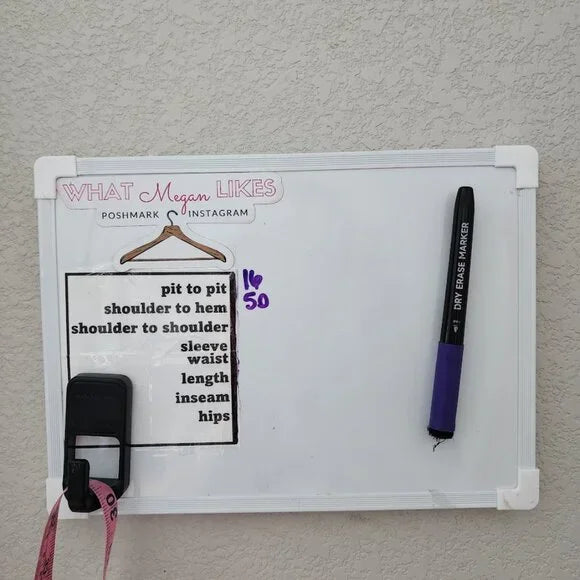 WHAT Megan LIKES
POSHMARK INSTAGRAM
pit to pit 16
shoulder to hem 50
shoulder to shoulder
sleeve
waist
length
inseam
hips
DRY ERASE MARKER